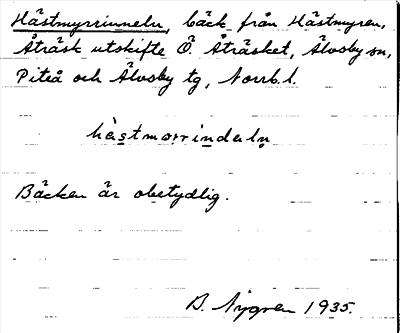 Hästmyrrinneln, bäck från Hästmyren,
Åträsk utskifte Ö. Åträsket, Älvsby sn,
Piteå och Älvsby tg, Norrb. l.
hästmorrindeln
Bäcken är obetydlig.
D. Nygren 1935.